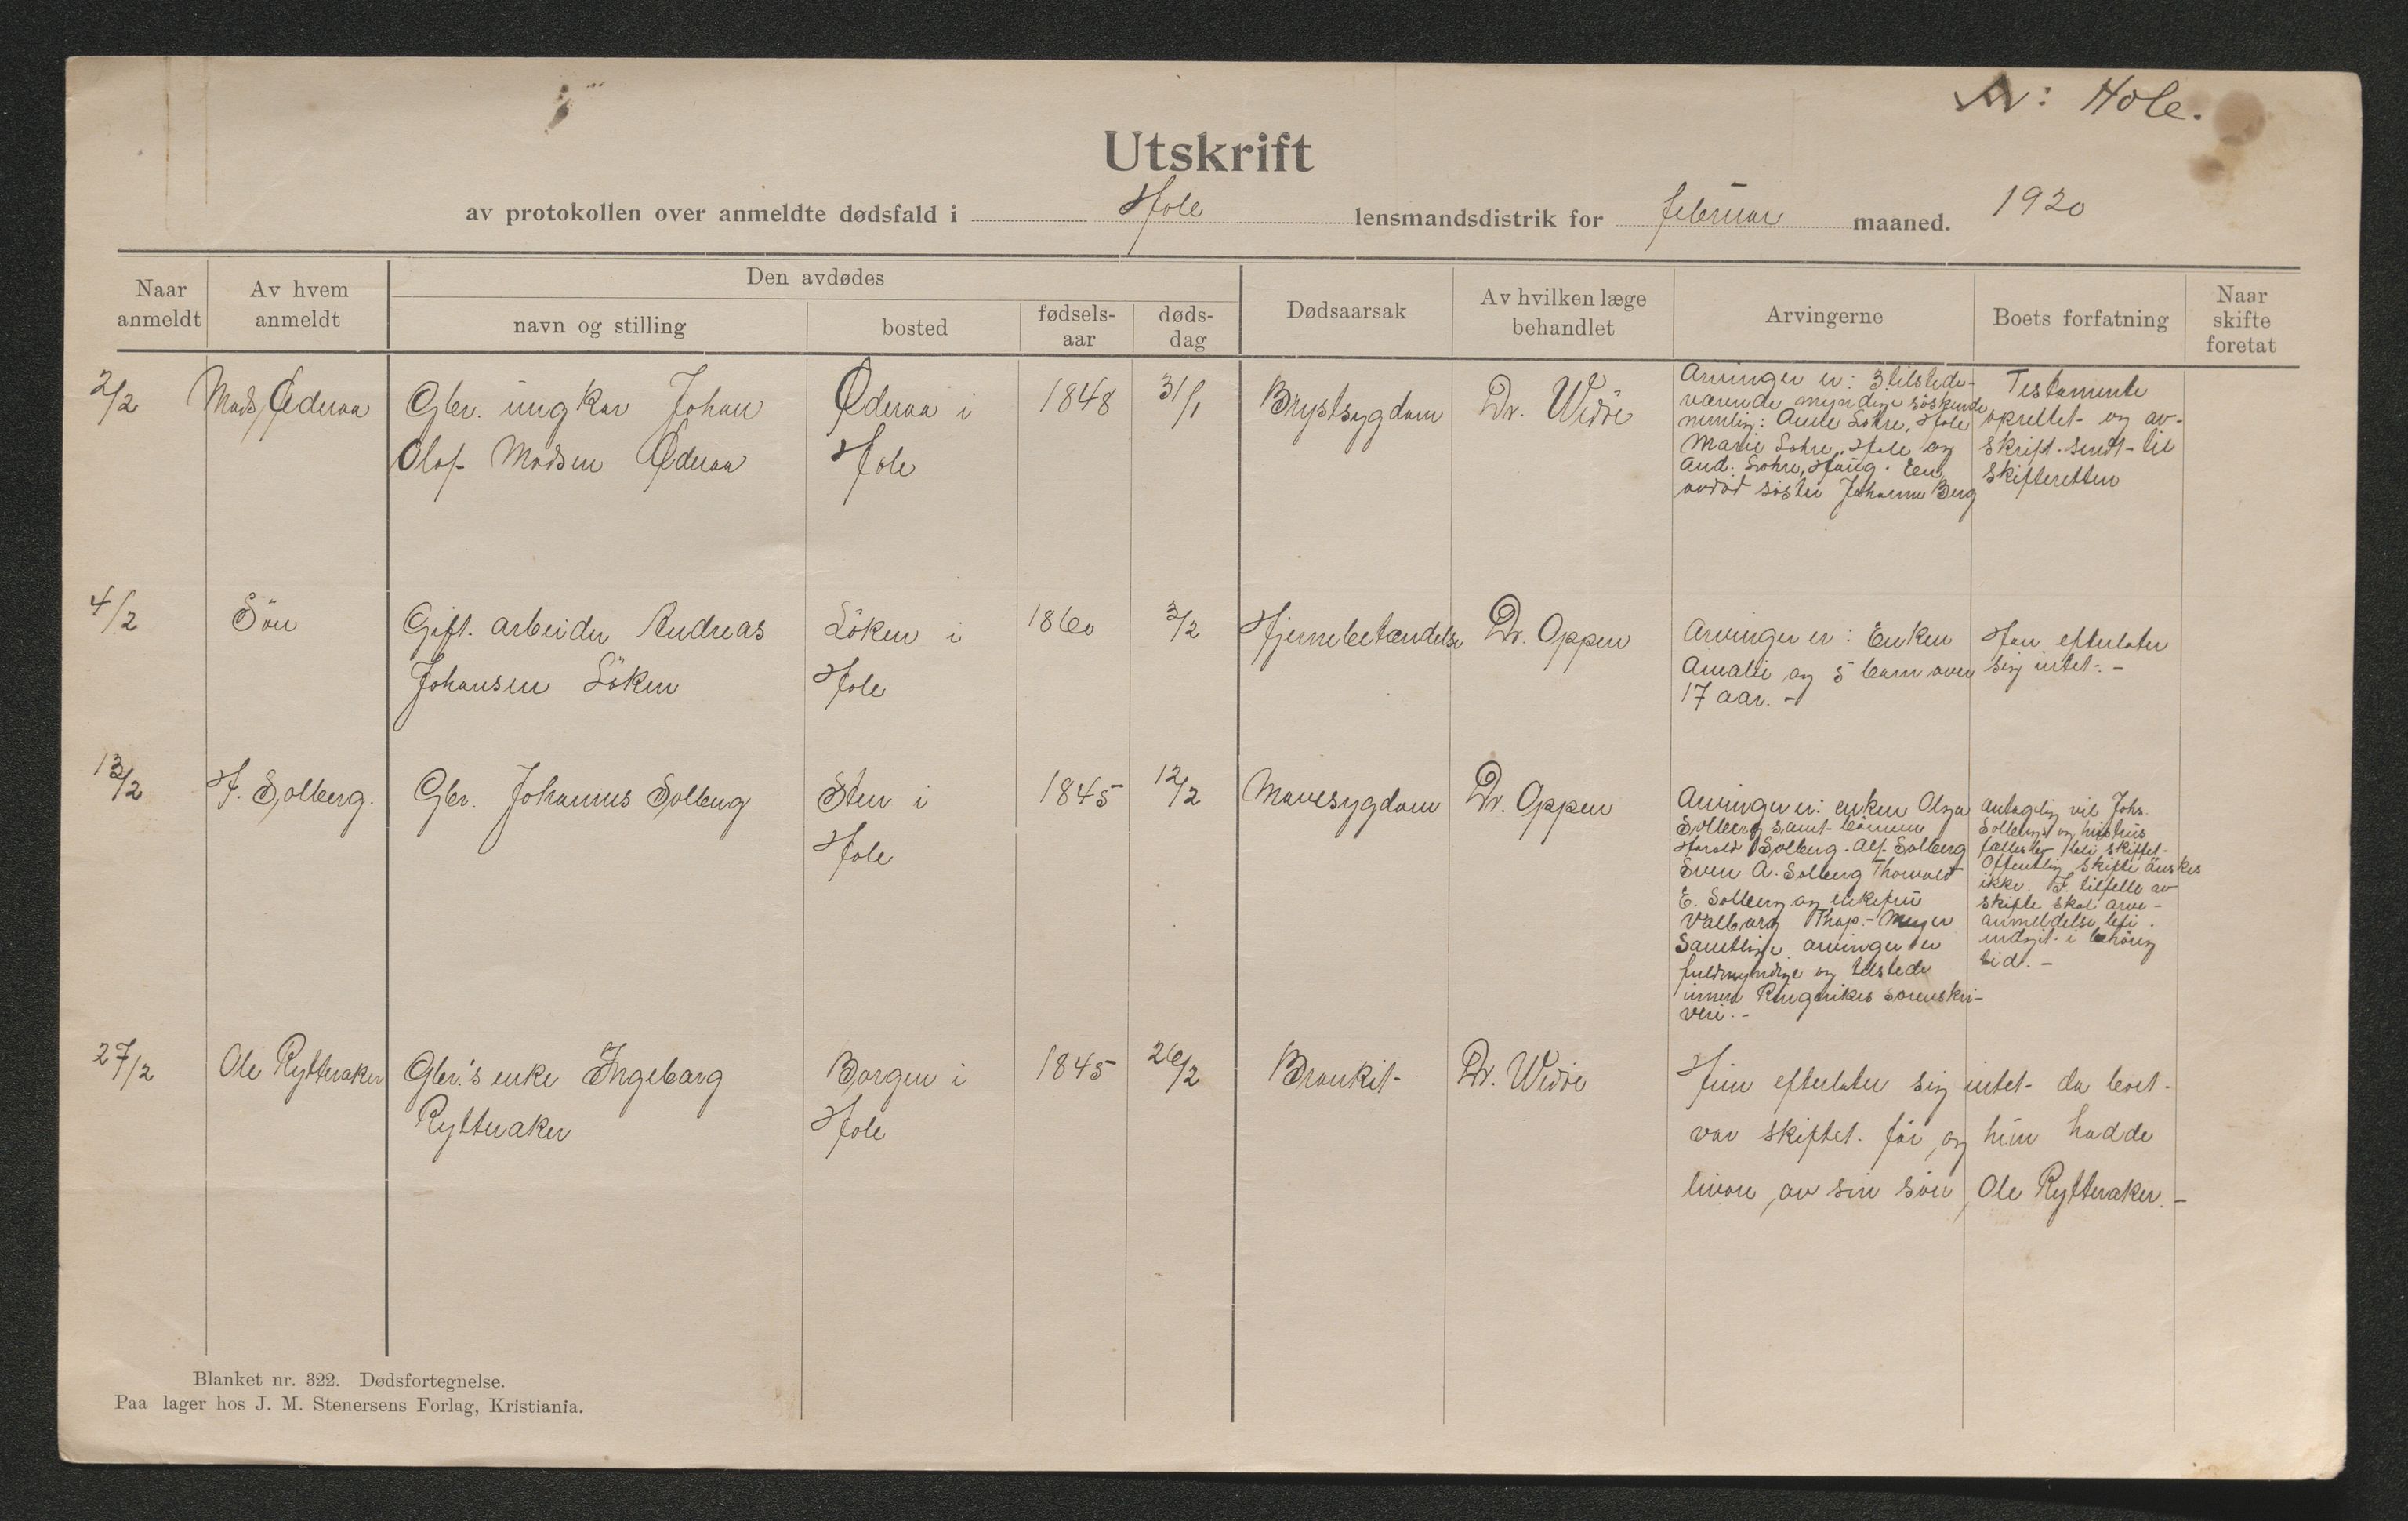 N: Hole.
Utskrift
av protokollen over anmeldte dødsfald i Hole lensmandsdistrik for februar maaned. 1920
Naar anmeldt
Av hvem anmeldt
Den avdødes
navn og stilling
bosted
fødsels-aar
døds-dag
Dødsaarsak
Av hvilken læge behandlet
Arvingerne
Boets forfatning
Naar skifte foretat
2/2
Mads Øderaa
Gbr. ungkar Johan
Olaf Madsen Øderaa
Øderaa i
Hole
1848
31/1
Brystsygdom
Dr. Widöe
Arvinger er: 3 tilstede-
værende myndige söskende
nemlig: Anne Lohre, Hole
Marie Lohre, Hole og
And. Lohre, Haug. En
avdöd söster Johanne Berg
Testamente
oprettet og av-
skrift sendt til
skifteretten
4/2
Sön
Gift. arbeider Andreas
Johansen Löken
Löken i
Hole
1860
3/2
Hjernebetændelse
Dr. Oppen
Arvinger er: Enken
Amalie og 5 barn over
17 aar. -
Han efterlater
sig intet. -
13/2
H. Solberg.
Gbr. Johannes Solberg
Sten i
Hole
1845
12/2
Mavesygdom
Dr. Oppen
Arvinger er: enken Olga
Solberg samt börnene
Harald Solberg. Alf Solberg
Sven A. Solberg Thorvald
E. Solberg og enkefru
Valborg Thap-Meyer
Samtlige arvinger er
fuldmyndige og tilstede
innen Ringerikes sorenskri-
veri. -
antagelig vil Johs.
Solbergs og hustrus
fællesbo bli skiftet.
Offentlig skifte önskes
ikke. I tilfelle av
skifte skal arve-
anmeldelse bli
indgit i behörig
tid. -
27/2
Ole Rytteraker
Gbr.'s enke Ingeborg
Rytteraker
Borgen i
Hole
1845
26/2
Bronkit
Dr. Widöe
Hun efterlater sig intet da boet
var skiftet för, og hun hadde
livöre av sin sön, Ole Rytteraker. -
Blanket nr. 322. Dødsfortegnelse.
Paa lager hos J. M. Stenersens Forlag, Kristiania.